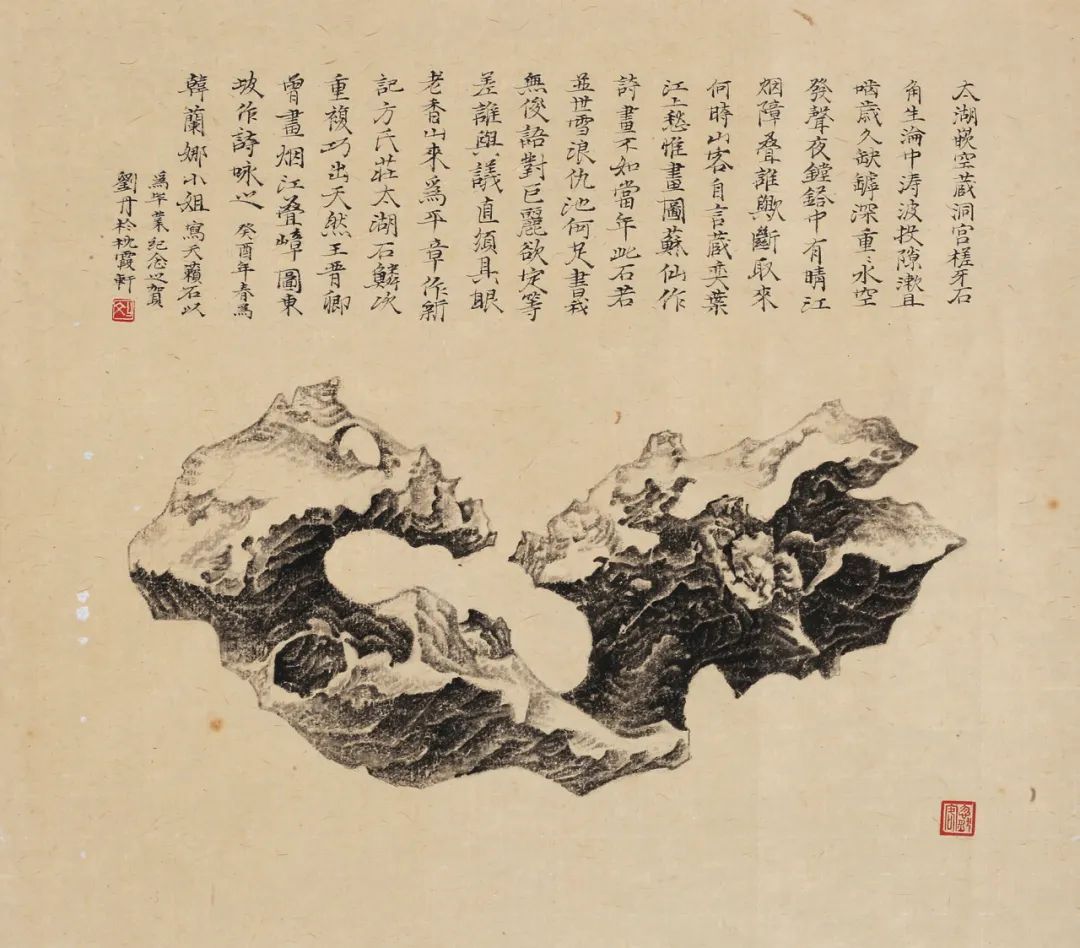 太湖嵌空蔵洞宫槎牙石
角生淪中涛波投隙漱且
啮歳久缺罅深重〻水空
發聲夜鏜鎝中有晴江
烟障叠誰歟斷取來
何時山客自言蔵奕葉
江上愁惟畫圖蘇仙作
詩畫不如當年此石若
並世雪浪仇池何足書我
無俊語對巨麗欲定等
差誰與議直須具眼
老香山來爲平章作新
記方氏莊太湖石鱗次
重複巧出天然王晋卿
曾畫烟江叠嶂圖東
坡作詩咏之 癸酉年春爲
韓蘭娜小姐寫天籟石以
爲畢業紀念之賀
劉丹於枕霞軒